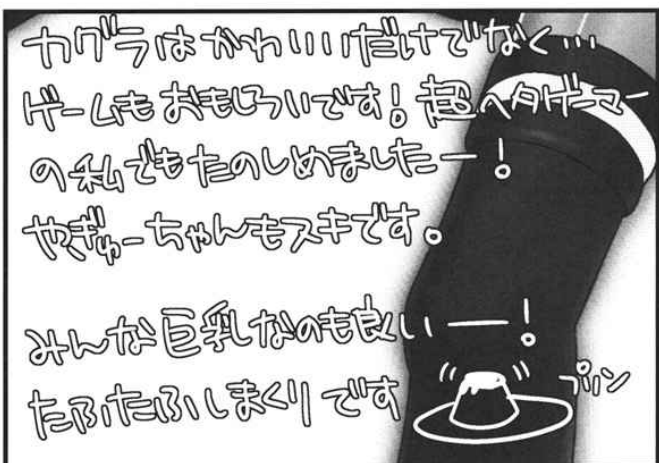 カグラはかわいいだけでなく…
ゲームもおもしろいです!超ヘタゲーマー
の私でもたのしめましたー!
やぎゅーちゃんもスキです。
みんな巨乳なのも良いー!
たふたふしまくりです
プリン